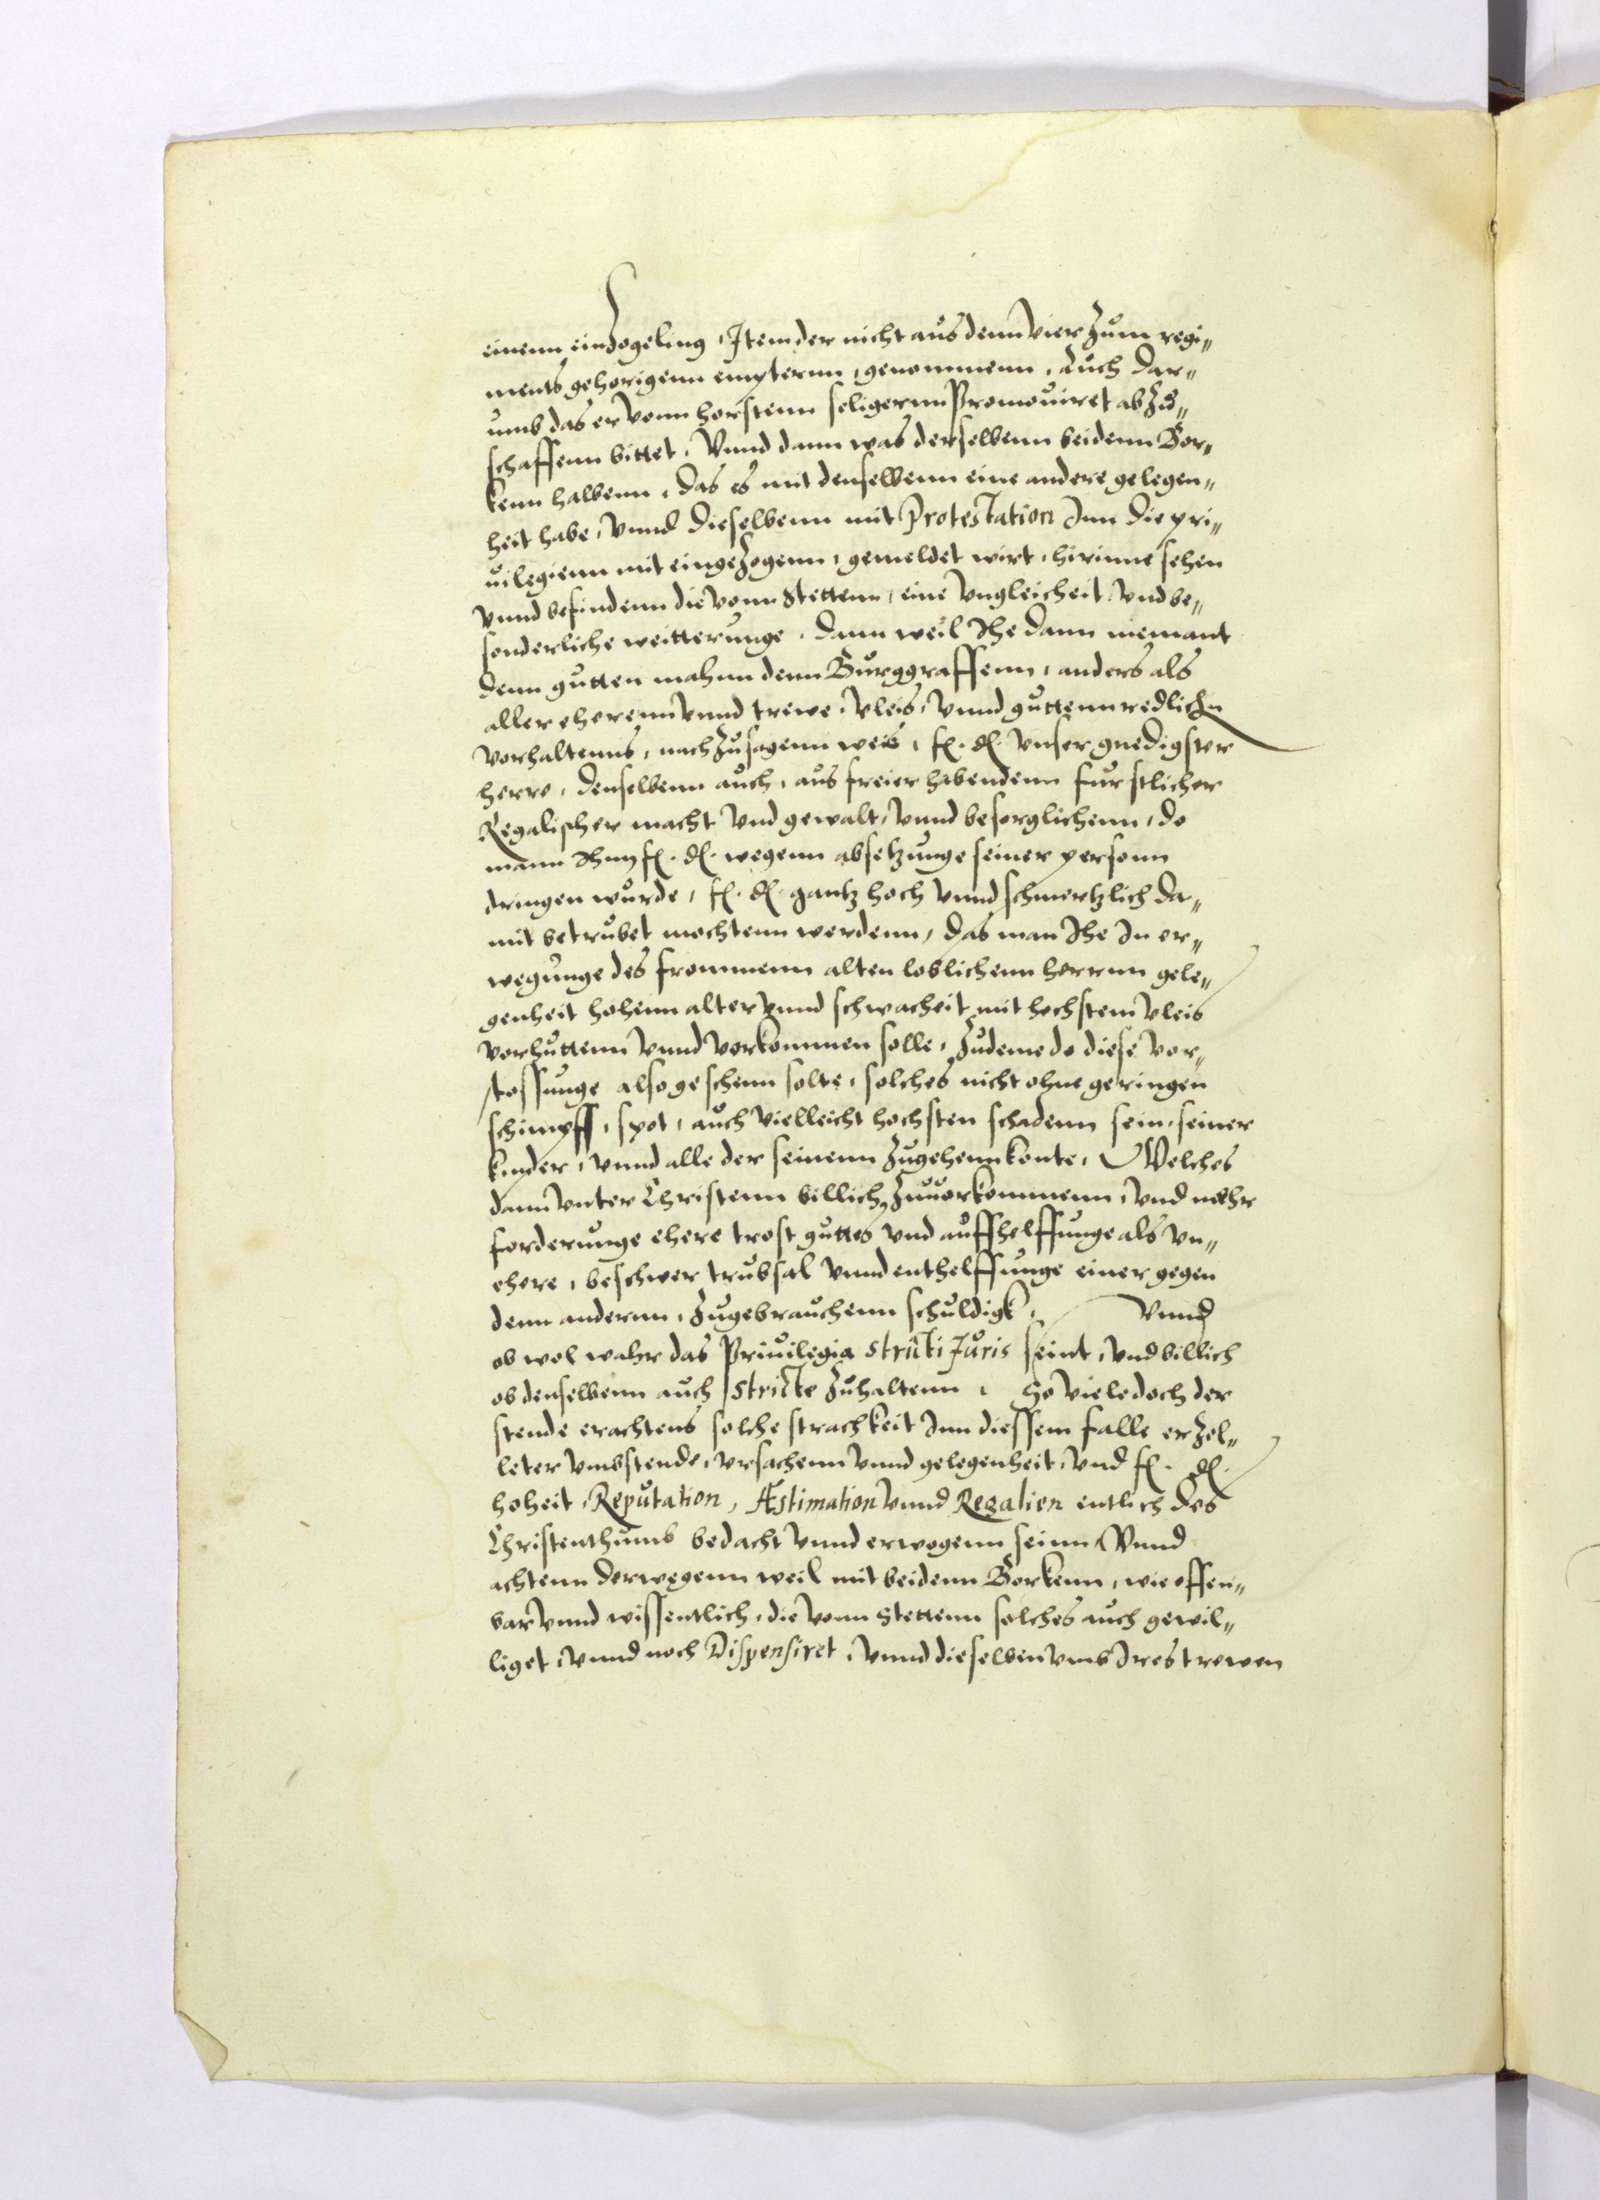 einenn einzogeling, Item der nicht aus denn vier zum regi„
ments gehorigenn empternn, genommenn, Auch dar„
umb das er vonn horstenn seligernn Promouiret abzu„
schaffenn bittet, Vnnd dann was derselbenn beidenn Bor„
kenn halbenn, das es mit denselbenn eine andere gelegen„
heit habe, vnnd dieselbenn mit Protestation Inn die pri„
uilegienn mit eingezogenn, gemeldet wirt, hirinne sehen
vnnd befindenn die vonn Stettenn, eine vngleicheit vnd be„
sonderliche weitterunge, dann weil Ihe dann niemant
denn gutten mahnn denn Burggraffenn, anders als
aller eherenn vnnd trewe, vleis, vnnd guttenn redlichn
vorhaltenns, nachzusagenn weis, f. d. vnser gnedigster
herre, denselbenn auch, aus freier habendenn furstlicher
Regalischer macht vnd gewalt, vnnd besorglichenn, do
mann Ihnn f. d. wegenn absetzunge seiner personn
dringen wurde, f. d. gantz hoch vnnd schmertzlich da„
mit betrubet mochtenn werdenn, das man Ihe In er„
wegunge des frommenn alten loblichenn herrnn gele„
genheit hohenn alter vnnd schwacheit mit hochstem vleis
vorhuttenn vnnd vorkommen solle, Zudeme do diese vor„
stossunge also geschenn solte, solches nicht ohne geringen
schimpff, spot, auch vielleicht hochsten schadenn sein, seiner
kinder, vnnd alle der seinenn zugehenn konte, Welches
dann vnter Christenn billich zuuorkommenn, vnd mehr
forderunge ehere trost guttes vnd auffhelffunge als vn„
ehere, beschwer trubsal vnnd enthelffunge einer gegen
denn andernn, zugebrauchenn schuldigk, Vnnd
ob wol wahr das Priuilegia stricti Juris seint, vnd billich
ob denselbenn auch stricte zuhaltenn, So viele doch der
stende erachtens solche strackheit Inn diessem falle erzel„
leter vmbstende, vrsachenn vnnd gelegenheit, vnd f. d.
hoheit, Reputation, Æstimation vnnd Regalien entlich des
Christenthumbs bedacht vnnd erwogenn seinn, Vnnd
achtenn derwegenn weil mit beidenn Borkenn, wie offen„
bar vnnd wissentlich, die vonn Stettenn solches auch gewil„
liget, vnnd noch Dispensiret, vnnd dieselben vmb Ires trewen